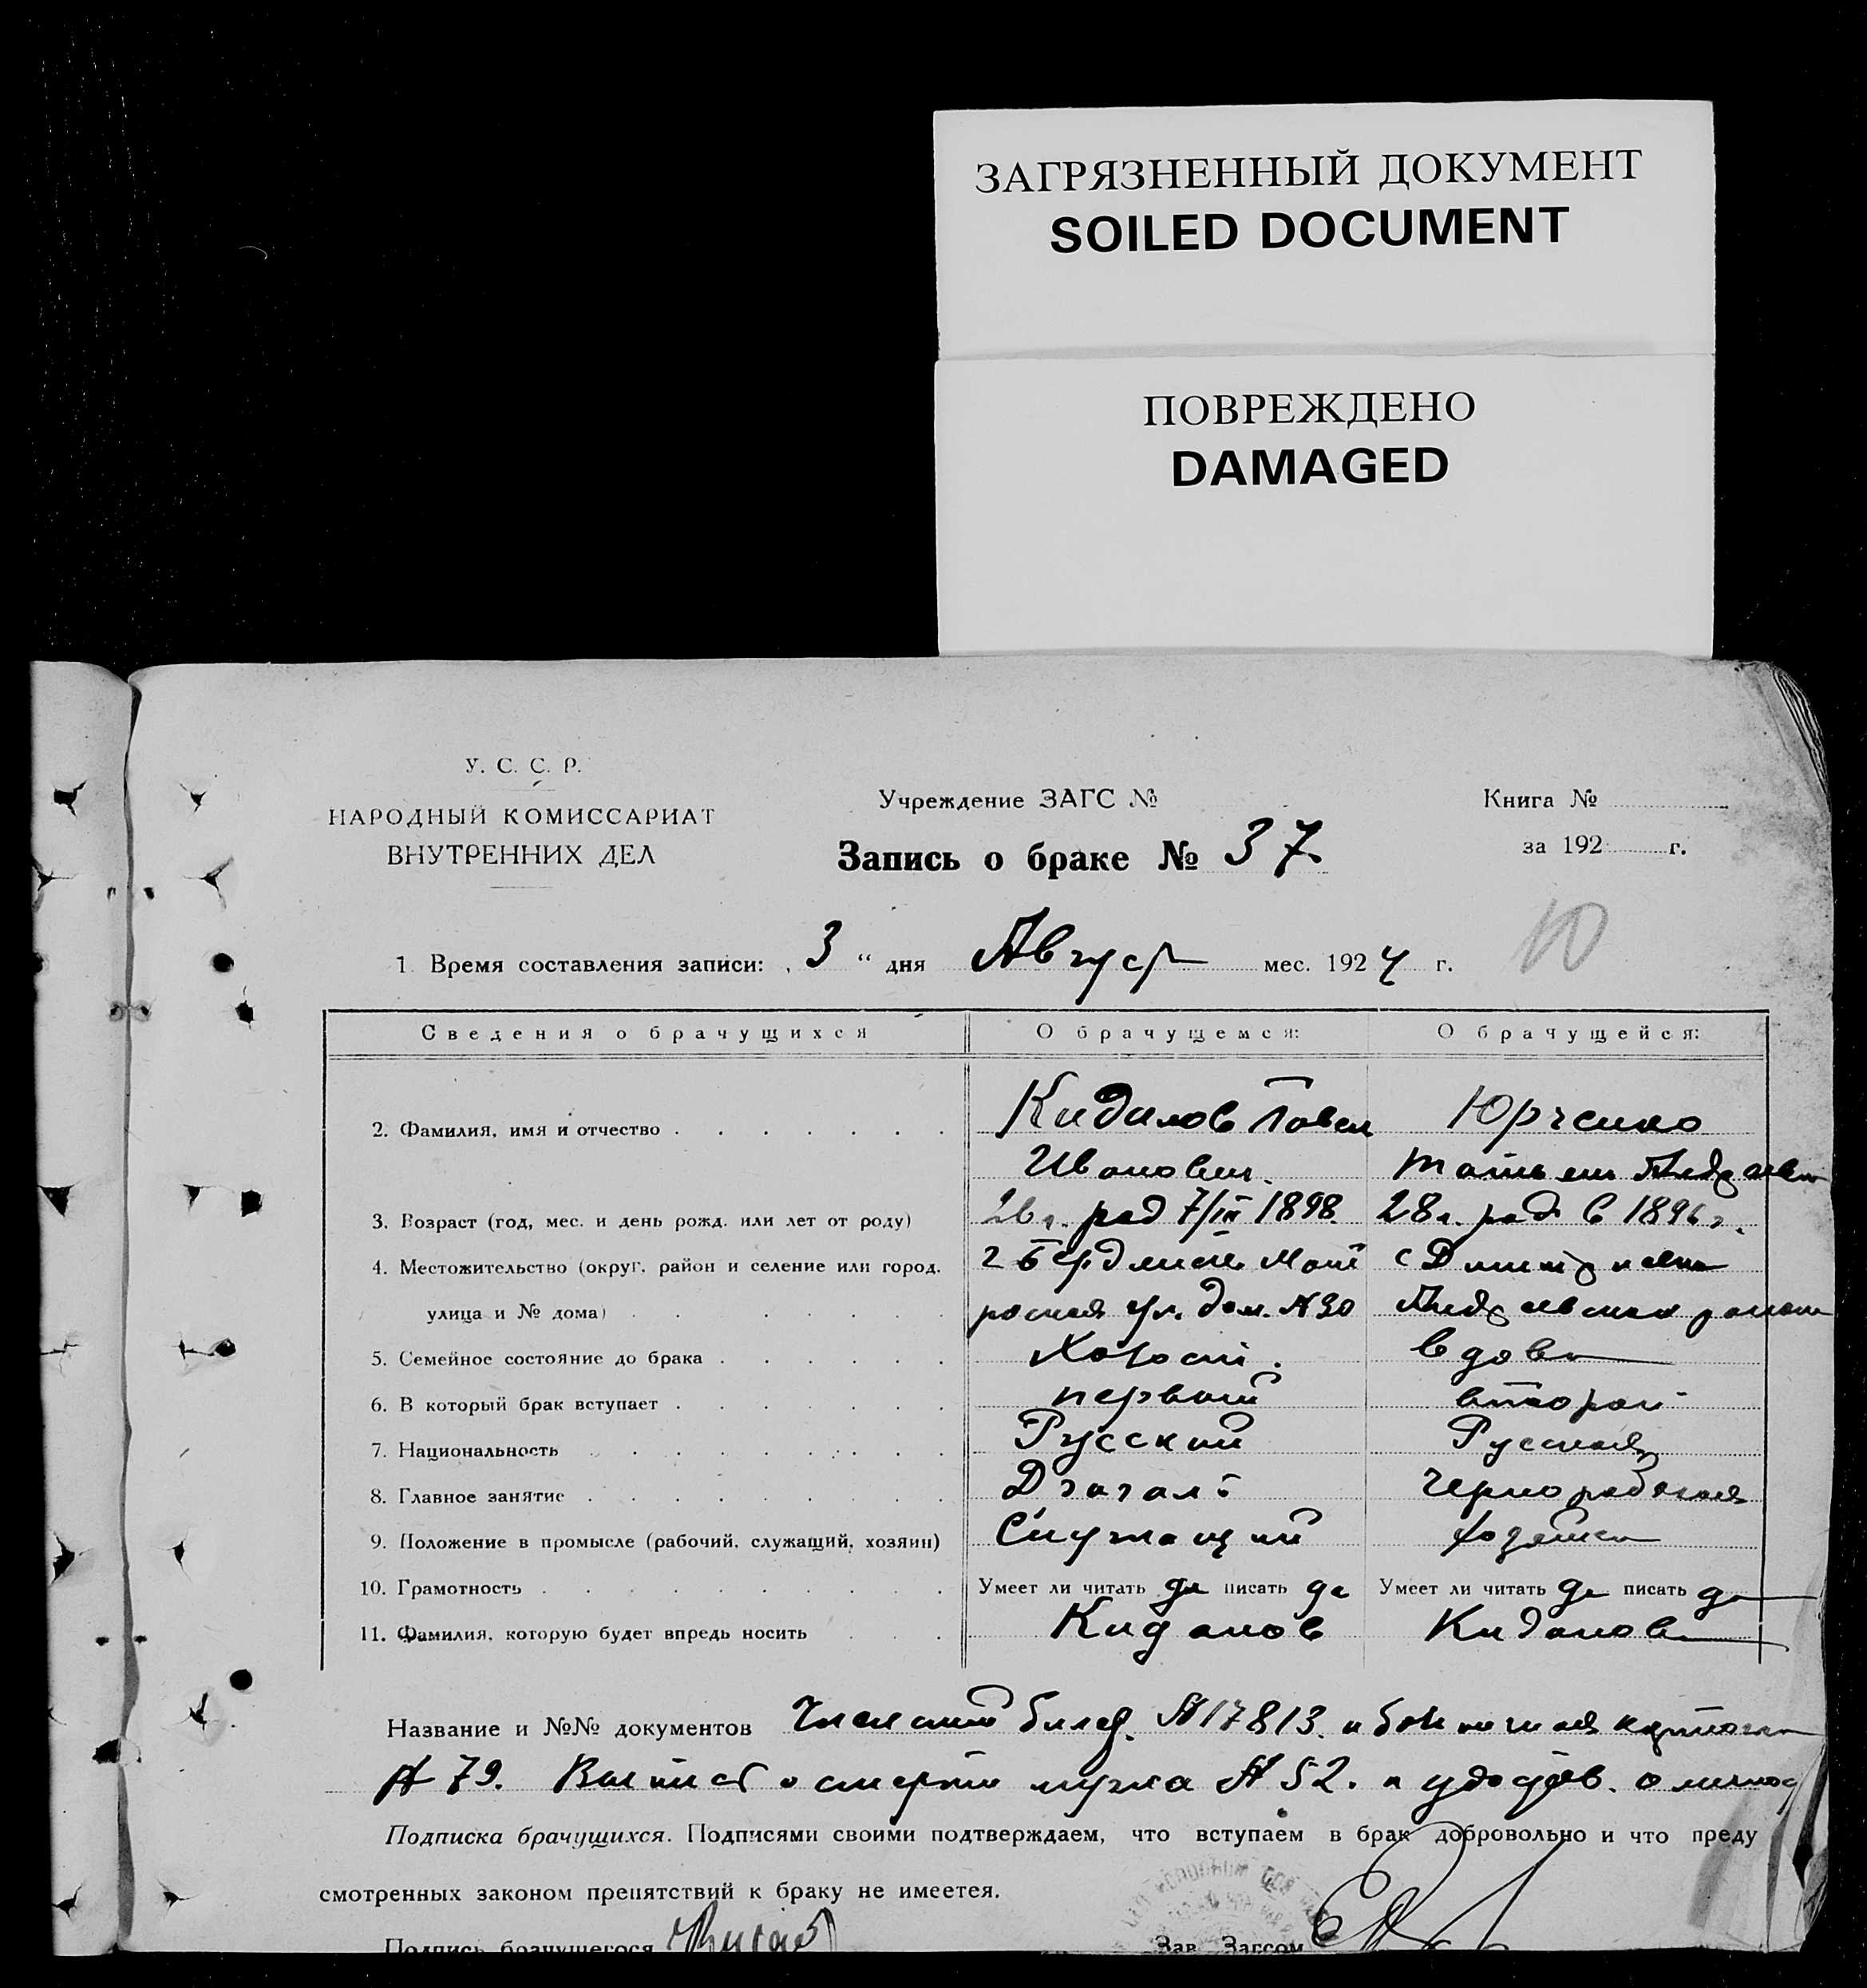 ЗАГРЯЗНЕННЫЙ ДОКУМЕНТ
SOILED DOCUMENT
ПОВРЕЖДЕНО
DAMAGED
У. С. С. Р.
НАРОДНЫЙ КОМИССАРИАТ
ВНУТРЕННИХ ДЕЛ
Учреждение ЗАГС №
Запись о браке № 37
Книга №
за 192 г.
10
1. Время составления записи: „ 3 “ дня Август мес. 1924 г.
Сведения о брачущихся О брачущемся: О брачущейся:
2. Фамилия, имя и отчество Киданов Павел Юрченко
Иванович Татьяна Андреевна
3. Возраст (год, мес. и день рожд. или лет от роду) 26 л. род 7/III 1898 28 л. род. в 1896 г.
4. Местожительство (округ, район и селение или город, г Бердянск Мат с Дмитровка
улица и № дома) росская ул. дом. № 30 Андреевского района
5. Семейное состояние до брака Холост. вдова
6. В который брак вступает первый второй
7. Национальность Русский Русская
8. Главное занятие чернорабочая
9. Положение в промысле (рабочий, служащий, хозяин) Служащий
10. Грамотность Умеет ли читать да писать да Умеет ли читать да писать да
11. Фамилия, которую будет впредь носить Киданов Киданова
Название и №№ документов Членский билет. № 17813. и карточка
№ 79. Выпись о смерти мужа № 52. и удостов. о личнос
Подписка брачущихся. Подписями своими подтверждаем, что вступаем в брак добровольно и что преду
смотренных законом препятствий к браку не имеется.
Подпись брачущегося Зав. Загсом